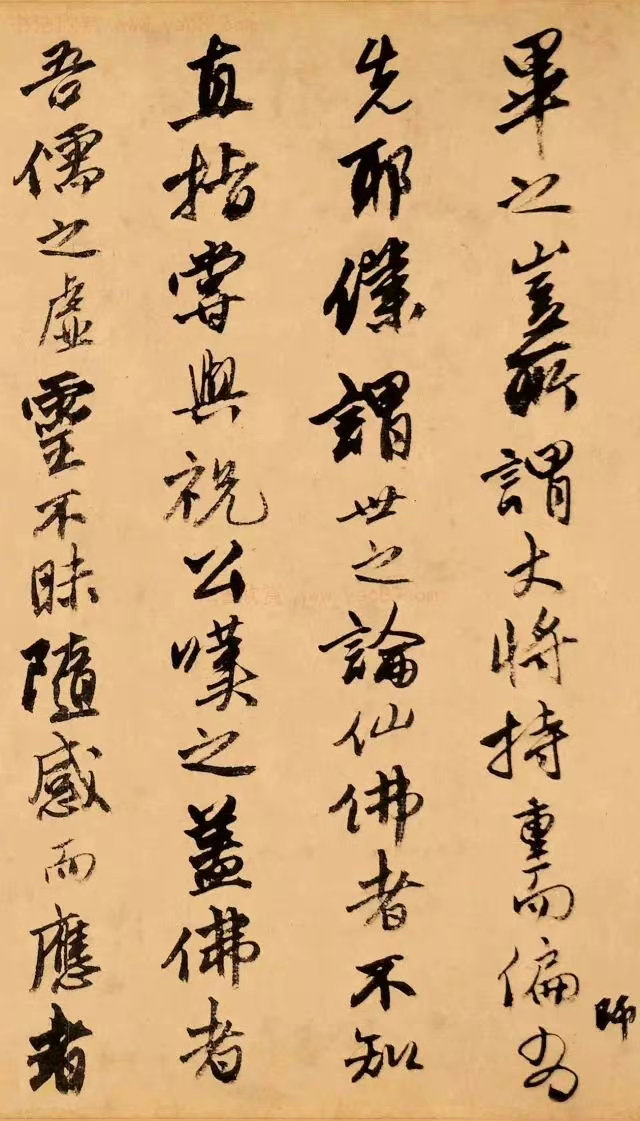 畢之豈所謂大将持重而偏為
師
先耶僕謂世之論仙佛者不知
直指嘗與祝公嘆之盖佛者
吾儒之虚靈不昧隨感而應者